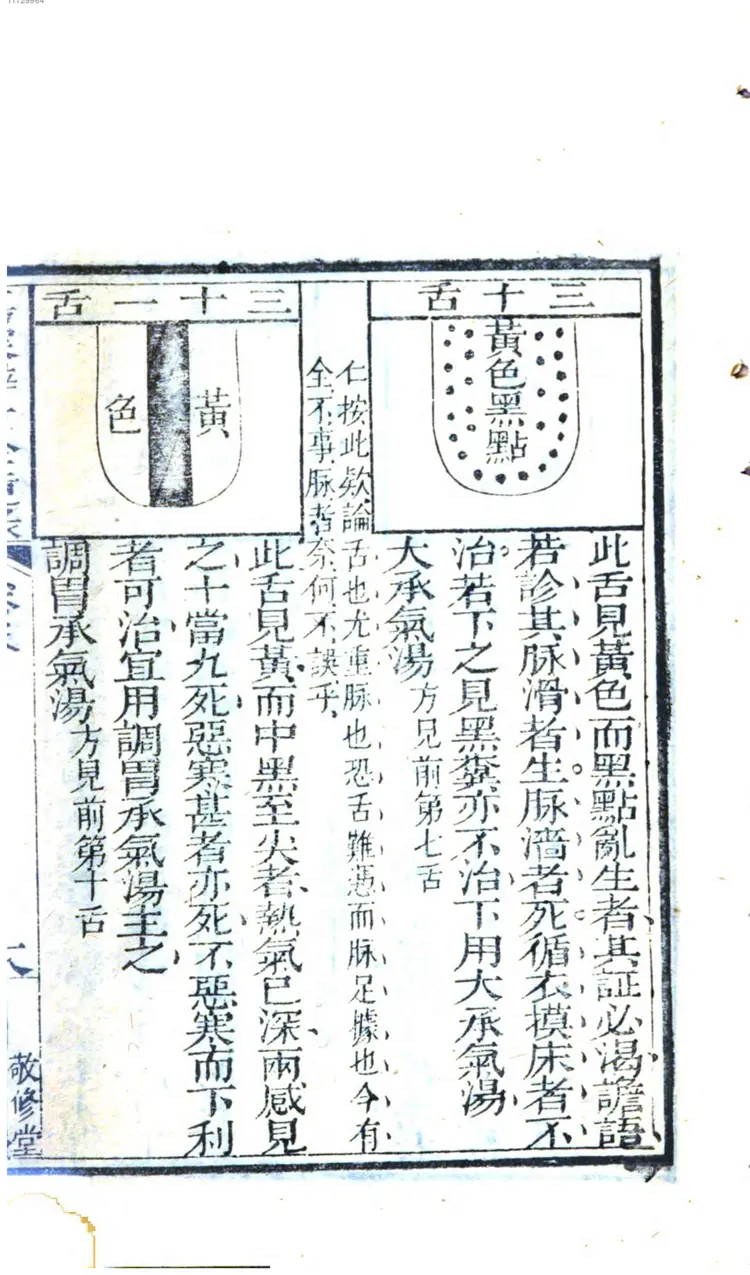 11129964
三十舌
黃色黑點
此舌見黃色而黑點亂生者其証必渴譫語
若診其脉滑者生脉濇者死循衣摸床者不
治若下之見黑糞亦不治下用大承氣湯
大承氣湯方見前第七舌
仁按此欵論舌也尤重脉也恐舌難憑而脉足據也今有
全不事脉者奈何不誤乎
三十一舌
黃
色
此舌見黃而中黑至尖者熱氣已深兩感見
之十當九死惡寒甚者亦死不惡寒而下利
者可治宜用調胃承氣湯主之
調胃承氣湯方見前第十舌
敬修堂